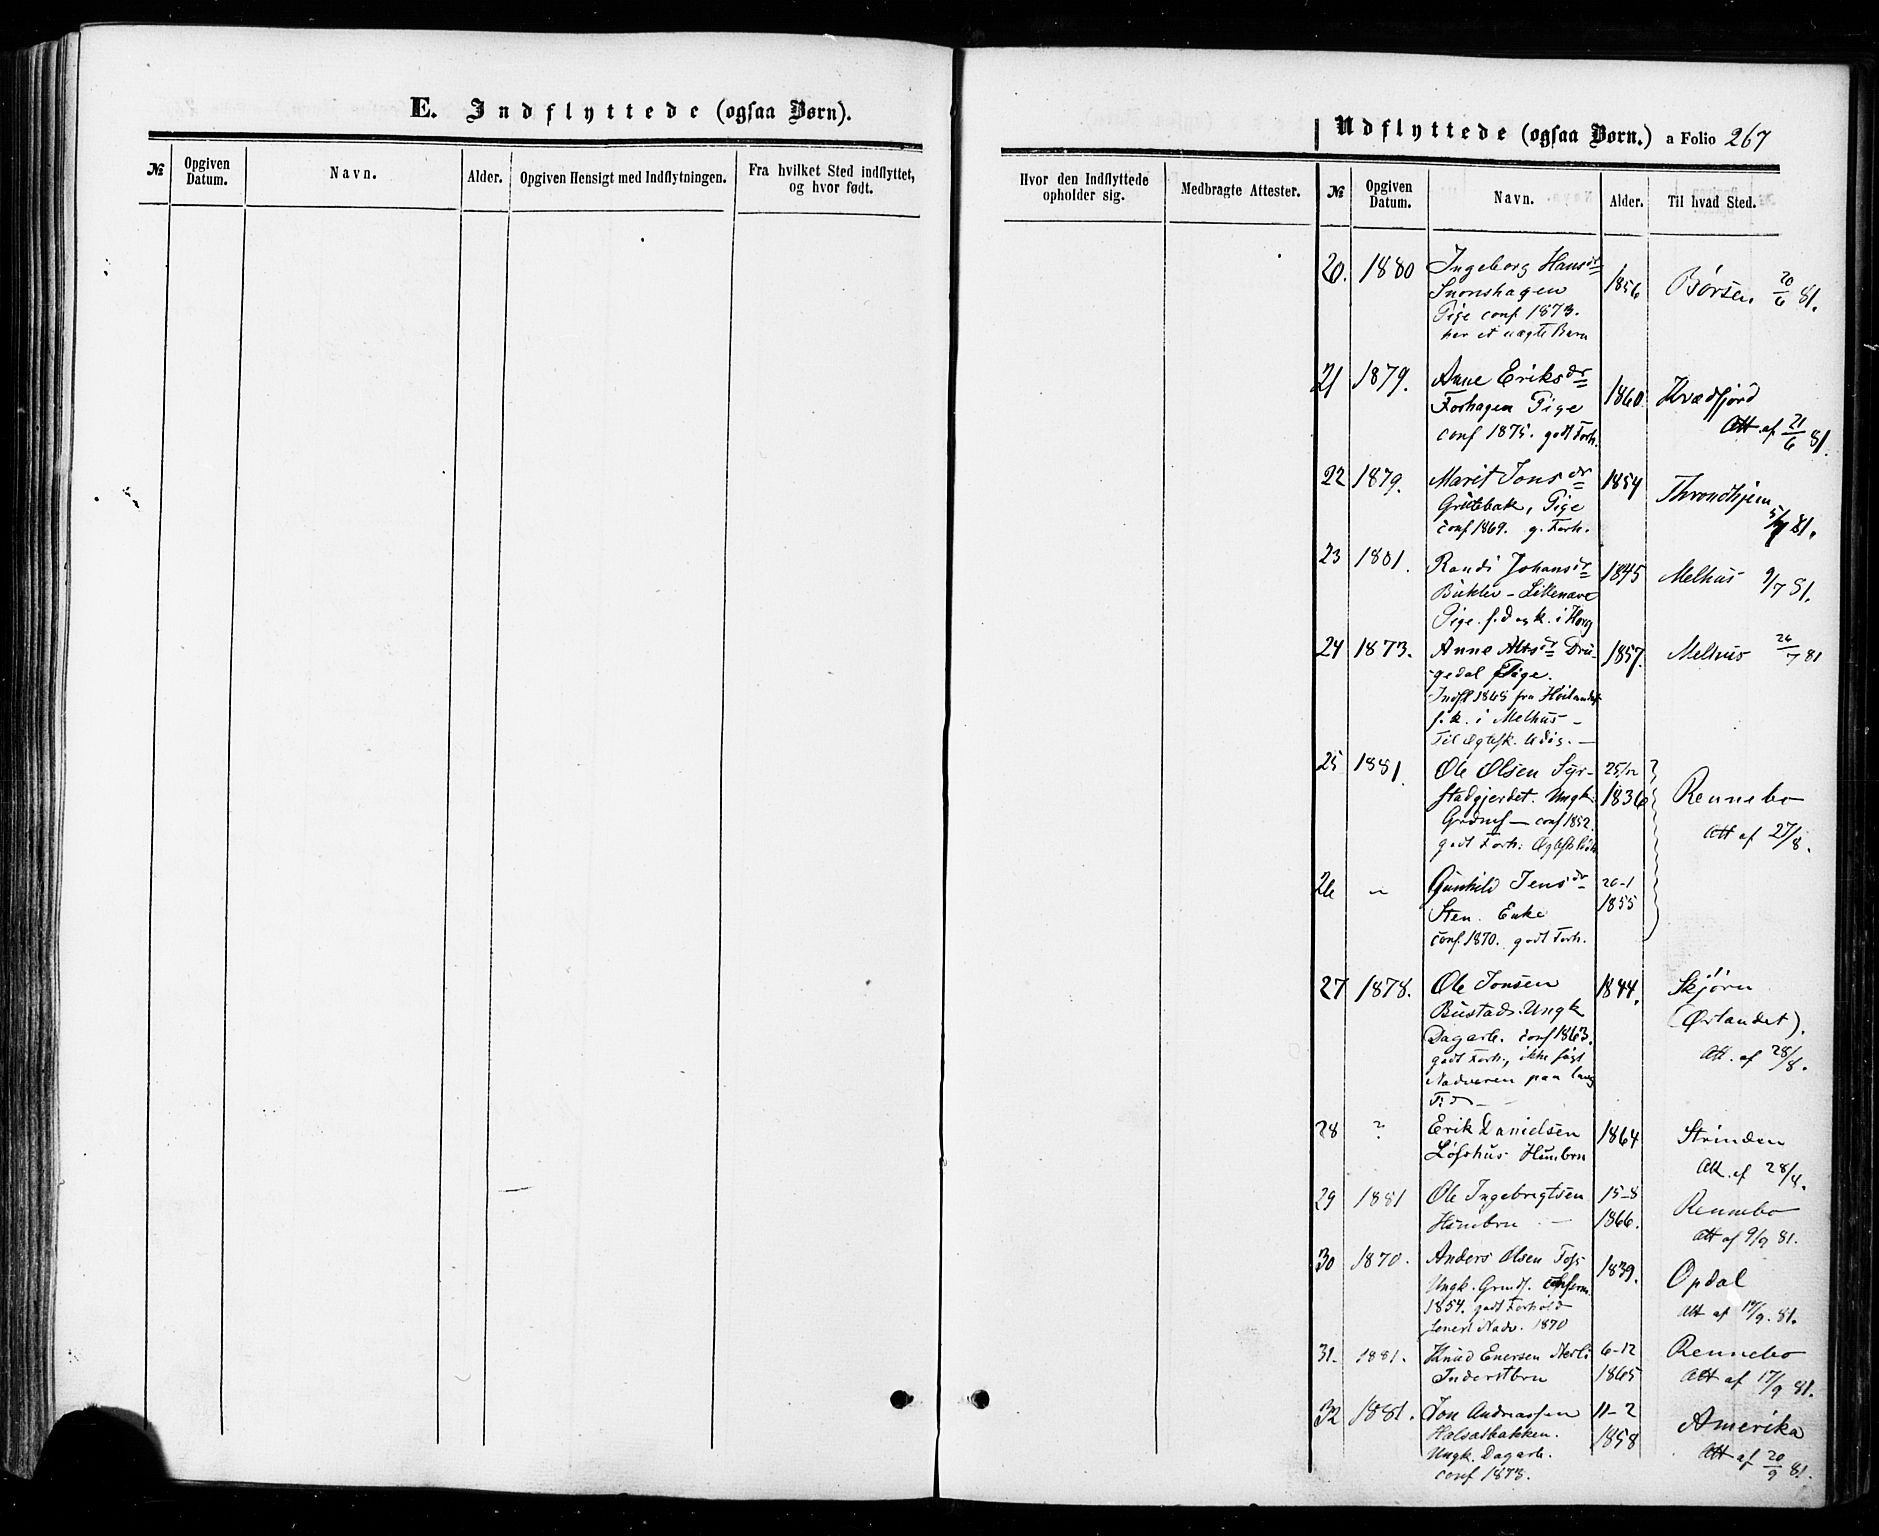 E. Indflyttede (ogsaa Børn).
№
Opgiven Datum.
Navn.
Alder.
Opgiven Hensigt med Indflytningen.
Fra hvilket Sted indflyttet, og hvor født.
Udflyttede (ogsaa Børn.) a Folio 267
Hvor den Indflyttede opholder sig.
Medbragte Attester.
№
Opgiven Datum.
Navn.
Alder.
Til hvad Sted.
20. 1880 Ingeborg Hansdr 1856 Børsen 20/6 81.
Snonshagen
Pige conf 1873.
har et uægte Barn
21 1879. Anne Eriksdr 1860 Kvædfjord
Forhagen Pige Att. af 21/6 81.
conf 1875. godt Forh.
22 1879. Marit Jonsdr 1854 Throndhjem
Grutebak, Pige 5/7 81.
conf 1869. g. Forh.
23 1801. Randi Johansdr 1845 Melhus 9/7 81.
Pige. f. d og k. i Horg
24 1873. Anne Alsdr Dru- 1857. Melhus 26/7 81
gedal Pige.
Indfl 1865 fra Høilandet
f. k. i Melhus –
Til Ægtesk. Udøs. –
25 1881. Ole Olsen Syr- 25/12
stadgjerdet. Ungk. 1836 Rennebo
Grdmf – conf 1852. Att af 27/8.
godt Forh.
26 – Gunhild Jensdr 20-1
Sten. Enke 1855
conf. 1870. godt Forh.
27 1878. Ole Jonsen 1844. Skjørn
Bustads. Ungk (Ørlandet).
Dagarb. conf 1863. Att. af 28/8.
godt Forh., ikke søgt
Nadveren paa lang
Tid –
28 ? Erik Danielsen 1864 Strinden
Løfshus Hūmbrn Att. af 28/4.
29 1881 Ole Ingebrigtsen 15-8 Rennebo
Hūmbrn – 1866. Att af 9/9 81.
30 1870. Anders Olsen Foss 1839. Opdal
Ungk. Grmdf. conferm. Att af 14/9. 81.
1854. godt Forhold
senest Nadv. 1870
31. 1881. Knud Enersen Nerli 6-12 Rennebo
Inderstbrn 1865 Att af 17/9 81.
32 1881. Jon Andreassen 11-2 Amerika
Halsætbakken. 1858 Att af 20/9 81.
Ungk. Dagarb.
conf 1873.